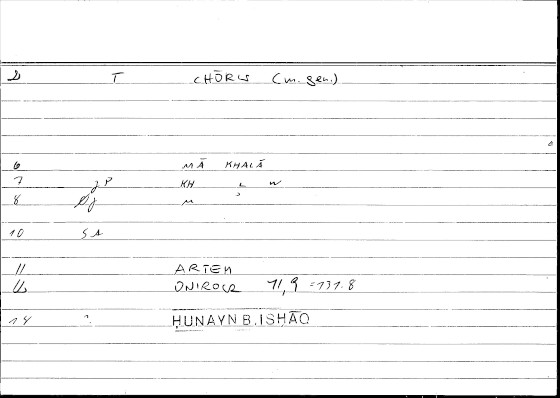 T CHŌRIS (m. gen.)
6 MĀ KHALĀ
7 gP KH L W
8 M
10 SA
11 ARTEM
ONIROCR 11,9 =131.8
14 ḤUNAYN B. ISḤĀQ